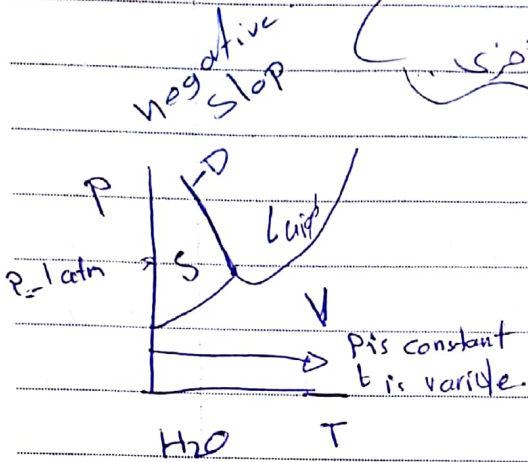 negative
slop
P
Liuid
P=1 atm
S
V
P is constant
t is varible.
H2O
T